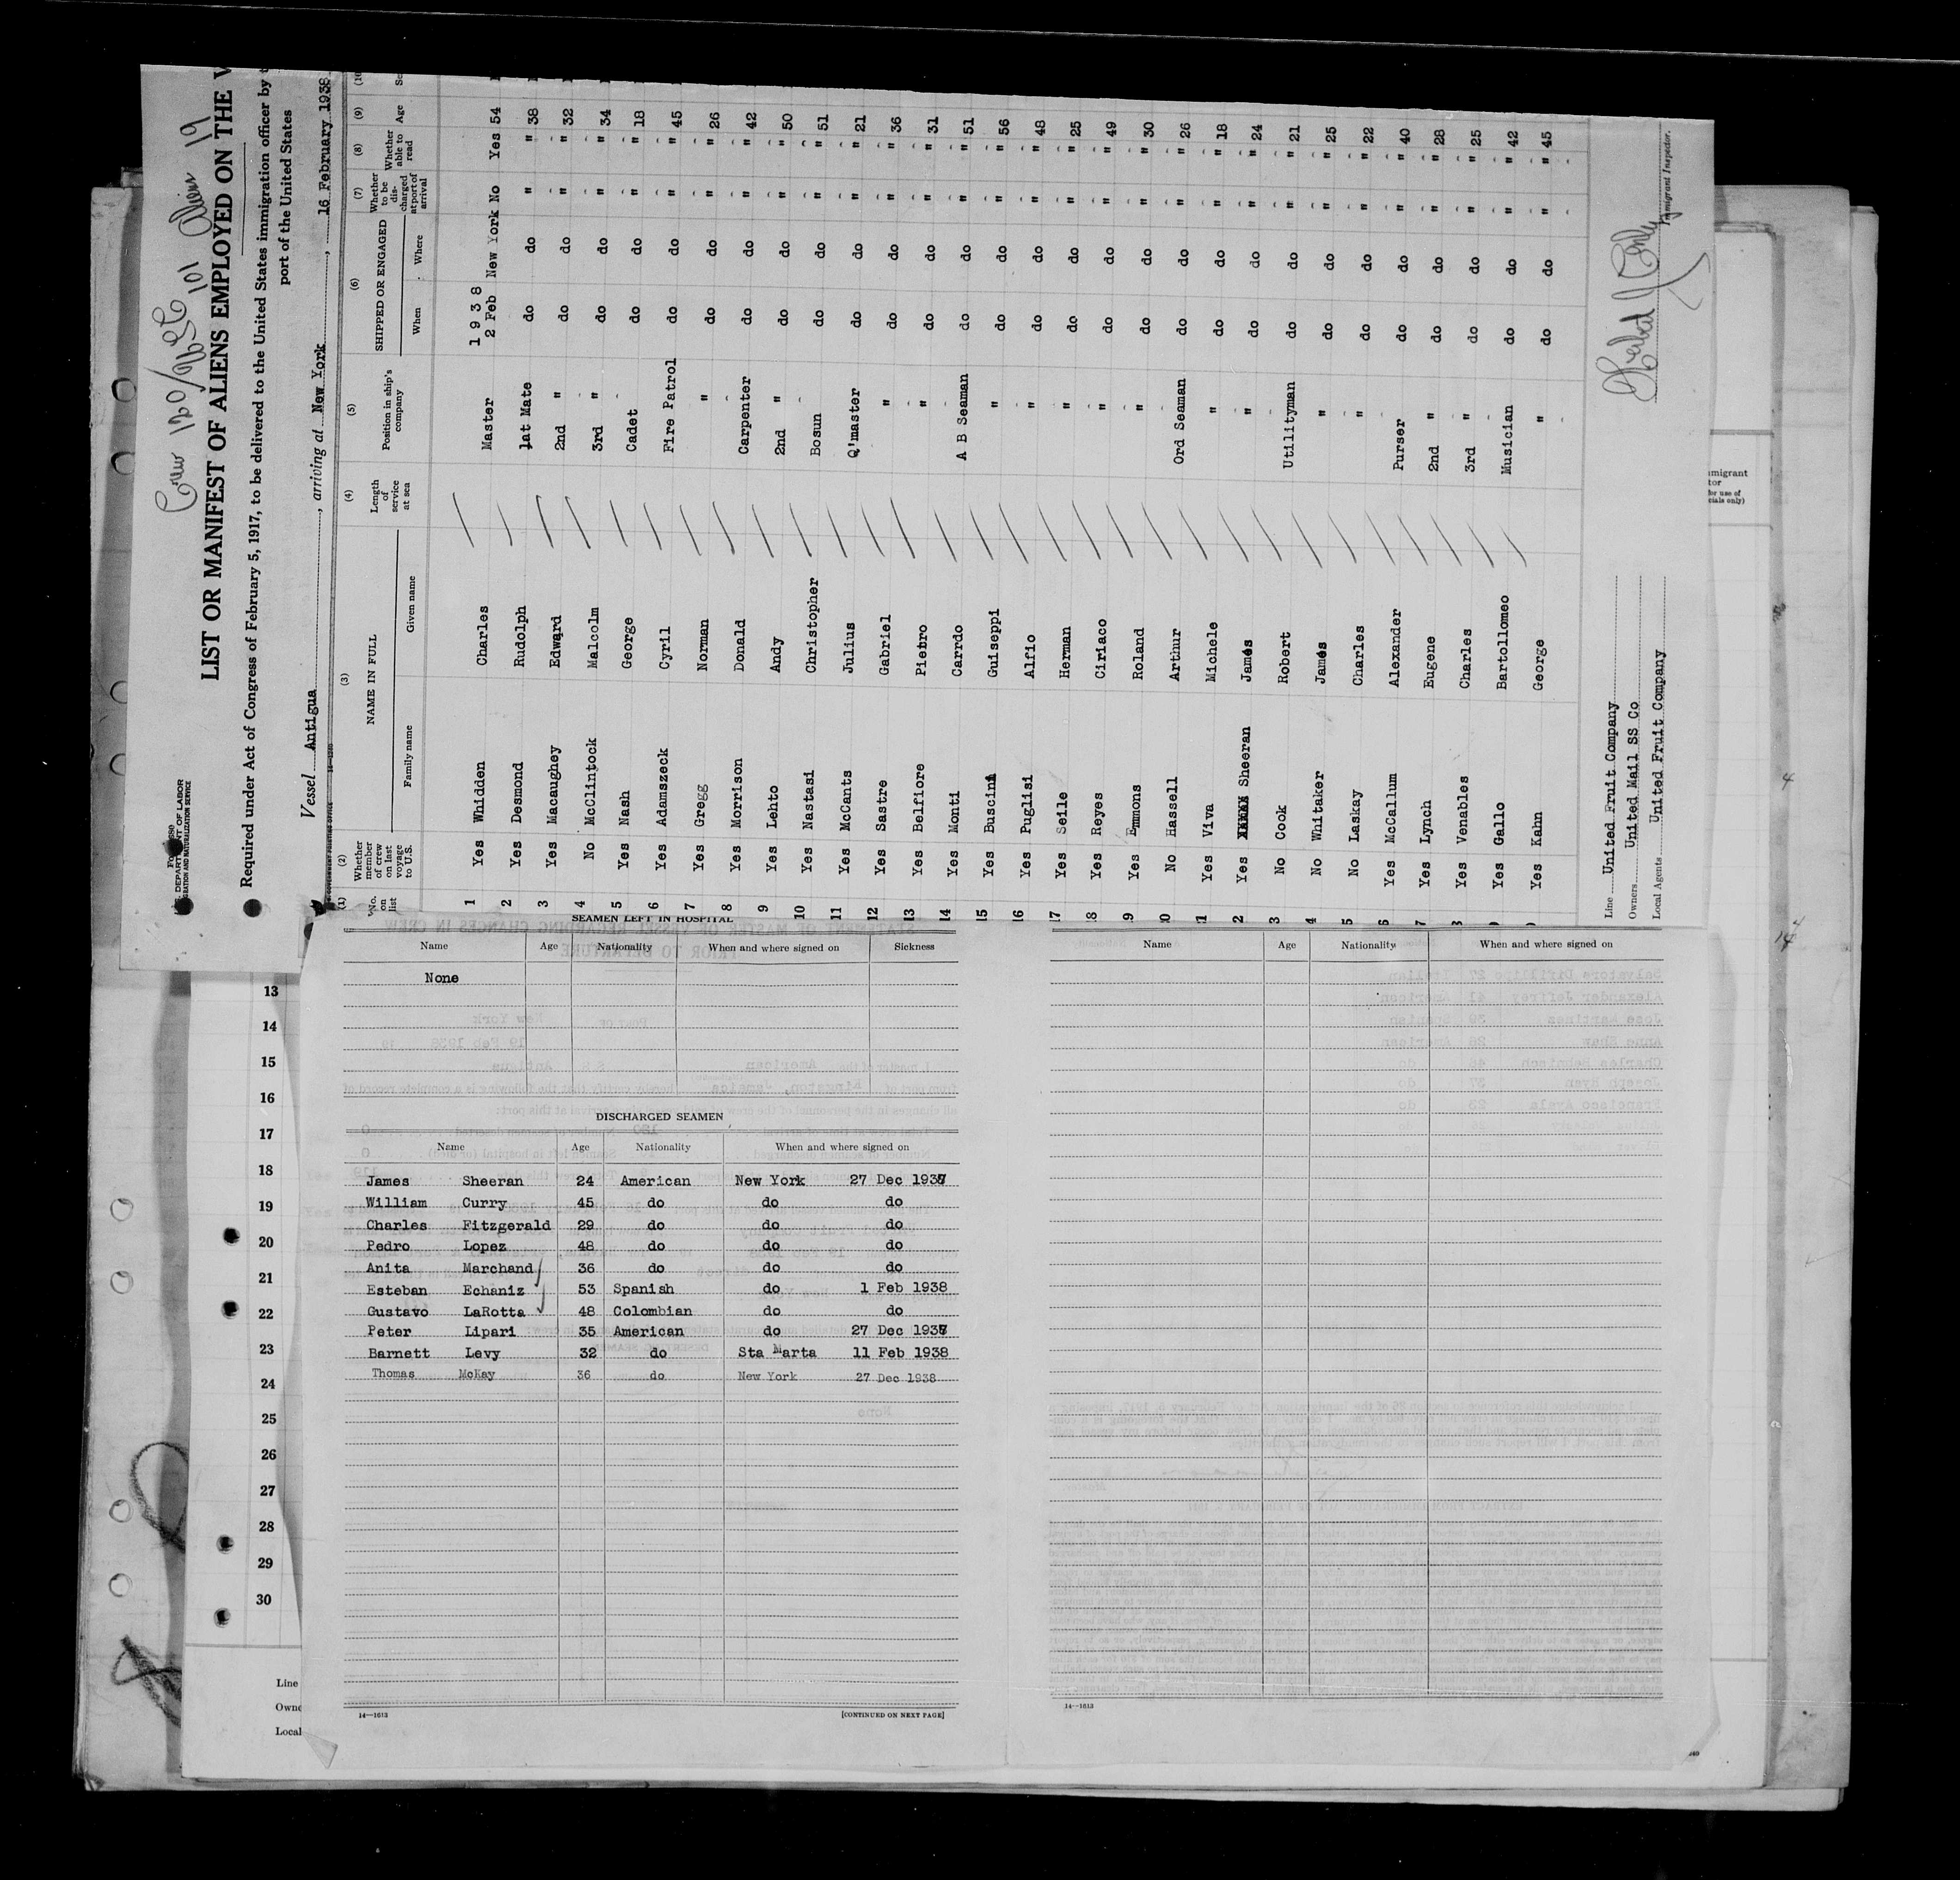 Crew 120/96 SC 101 Aliens 19
U.S. DEPARTMENT OF LABOR
IMMIGRATION AND NATURALIZATION SERVICE
LIST OR MANIFEST OF ALIENS EMPLOYED ON THE
Required under Act of Congress of February 5, 1917, to be delivered to the United States immigration officer by
port of the United States
Vessel Antigua, arriving at New York, 16 February 1938
(1) (2) (3) (4) (5) (6) (7) (8) (9)
No. on list Whether member of crew on last voyage to U.S. NAME IN FULL Length of service at sea Position in ship's company SHIPPED OR ENGAGED Whether to be discharged at port of arrival Whether able to read Age
Family name Given name When Where
1938
1 Yes Whidden Charles Master 2 Feb New York No Yes 54
2 Yes Desmond Rudolph 1at Mate do do " " 38
3 Yes Macaughey Edward 2nd " do do " " 32
4 No McClintock Malcolm 3rd " do do " " 34
5 Yes Nash George Cadet do do " " 18
6 Yes Adamszeck Cyril Fire Patrol do do " " 45
7 Yes Gregg Norman " do do " " 26
8 Yes Morrison Donald Carpenter do do " " 42
9 Yes Lehto Andy 2nd " do do " " 50
10 Yes Nastasi Christopher Bosun do do " " 51
11 Yes McCants Julius Q'master do do " " 21
12 Yes Sastre Gabriel " do do " " 36
13 Yes Belfiore Pietro " do do " " 31
14 Yes Monti Carrdo A B Seaman do do " " 51
15 Yes Buscini Guiseppi " do do " " 56
16 Yes Puglisi Alfio " do do " " 48
17 Yes Seile Herman " do do " " 25
18 Yes Reyes Ciriaco " do do " " 49
19 Yes Emmons Roland " do do " " 30
0 No Hassell Arthur Ord Seaman do do " " 26
1 Yes Viva Michele " do do " " 18
2 Yes Sheeran James " do do " " 24
3 No Cook Robert Utilityman do do " " 21
4 No Whitaker James " do do " " 25
5 No Laskay Charles " do do " " 22
6 Yes McCallum Alexander Purser do do " " 40
7 Yes Lynch Eugene 2nd " do do " " 28
8 Yes Venables Charles 3rd " do do " " 25
Yes Gallo Bartolllomeo Musician do do " " 42
Yes Kahn George " do do " " 45
Line United Fruit Company
Owners United Mail SS Co
Local Agents United Fruit Company
Immigrant Inspector.
SEAMEN LEFT IN HOSPITAL
Name Age Nationality When and where signed on Sickness
None
DISCHARGED SEAMEN
Name Age Nationality When and where signed on
James Sheeran 24 American New York 27 Dec 1937
William Curry 45 do do do
Charles Fitzgerald 29 do do do
Pedro Lopez 48 do do do
Anita Marchand 36 do do do
Esteban Echaniz 53 Spanish do 1 Feb 1938
Gustavo LaRotta 48 Colombian do do
Peter Lipari 35 American do 27 Dec 1937
Barnett Levy 32 do Sta Marta 11 Feb 1938
Thomas McKay 36 do New York 27 Dec 1938
14—1613
[CONTINUED ON NEXT PAGE]
Name Age Nationality When and where signed on
14—1613
13
14
15
16
17
18
19
20
21
22
23
24
25
26
27
28
29
30
Line
Owne
Local